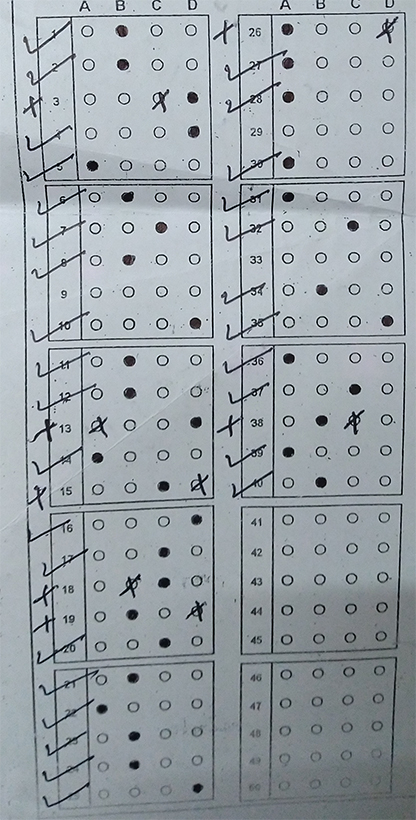 A B C D
1
2
3
4
5
6
7
8
9
10
11
12
13
14
15
16
17
18
19
20
21
22
23
24
A B C D
26
27
28
29
30
31
32
33
34
35
36
37
38
39
40
41
42
43
44
45
46
47
48
49
50